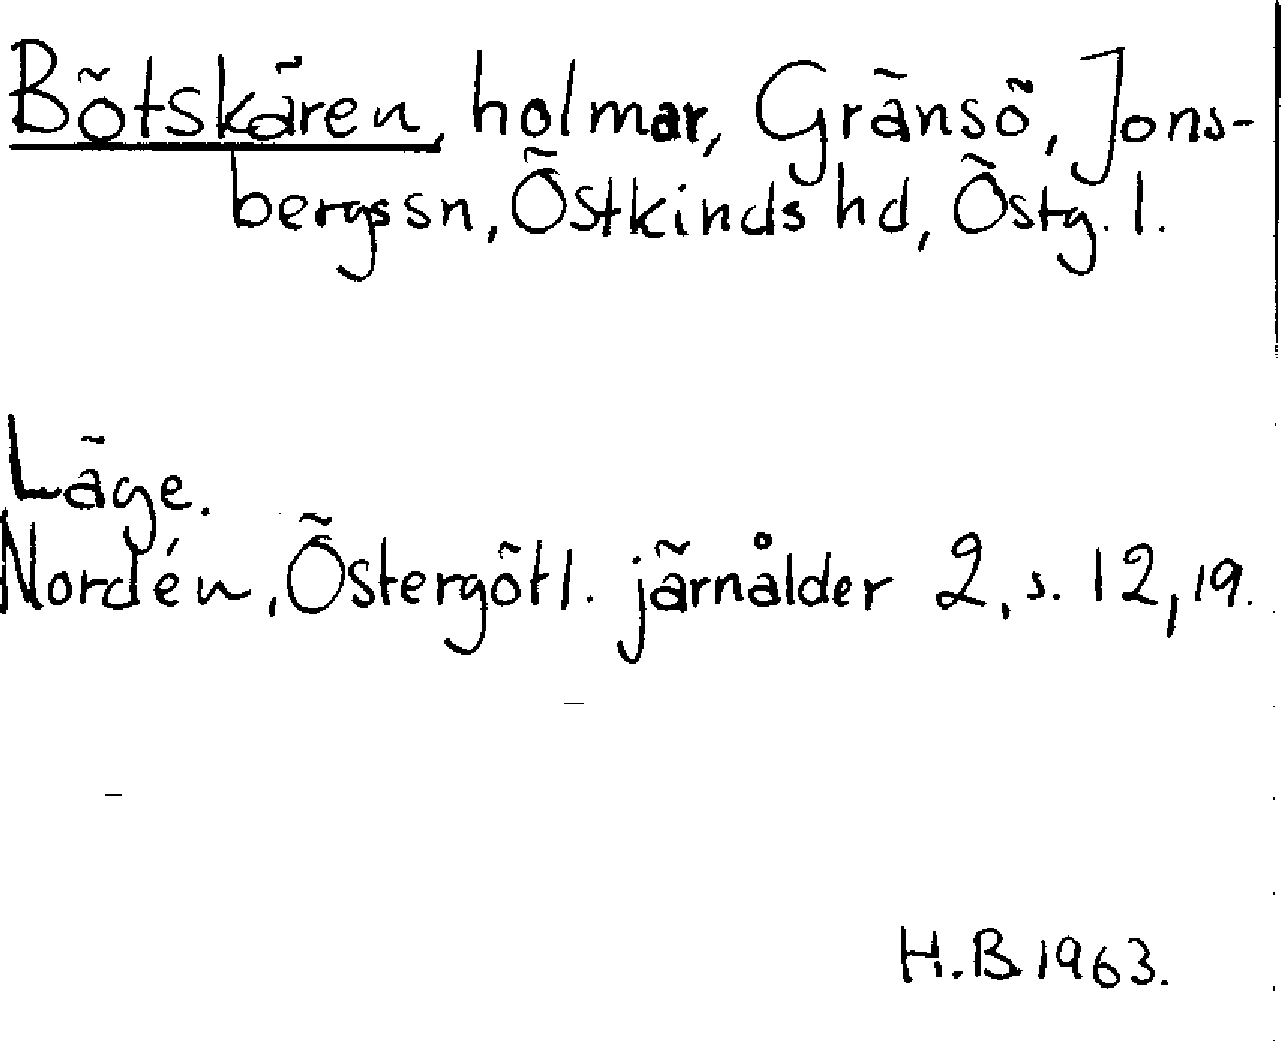 Bötskären, holmar, Gränsö, Jons-
bergs sn, Östkinds hd, Östg. l.
Läge.
Nordén, Östergötl. järnålder 2, s. 12, 19.
H.B. 1963.